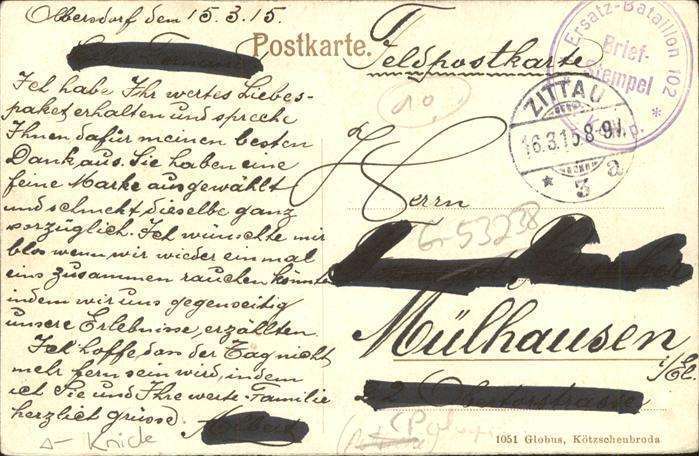 Olbersdorf den 15.3.15.
Ich habe Ihr wertes Liebes-
paket erhalten und spreche
Ihnen dafür meinen besten
Dank aus. Sie haben eine
feine Marke ausgewählt
und schmekt dieselbe ganz
vorzüglich. Ich wünschte mir
blos wenn wir wieder ein mal
eins zusammen rauchen könnte
indem wir uns gegenseitig
unsere Erlebnisse, erzählten
Ich hoffe, das der Tag nicht
mehr fern sein wird, indem
ich Sie und Ihre werte Familie
herzlich grüsse.
Knicke
Postkarte.
Feldpostkarte
Ersatz-Bataillon 102
Brief-
stempel
ZITTAU
16.3.15.8-9V.
* 3 a
Herrn
G-53238
Mülhausen
i/El.
22 Obertorstrasse
1051 Globus, Kötzschenbroda